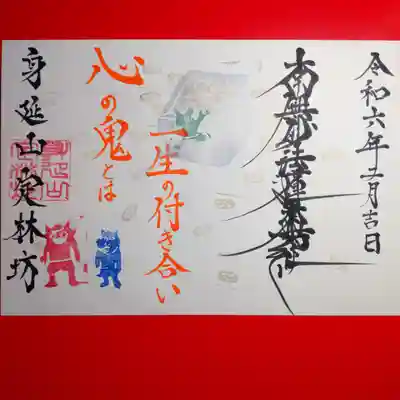 令和六年月吉日
南無妙法蓮華経
一生の付き合い
心の鬼とは
身延山定林坊